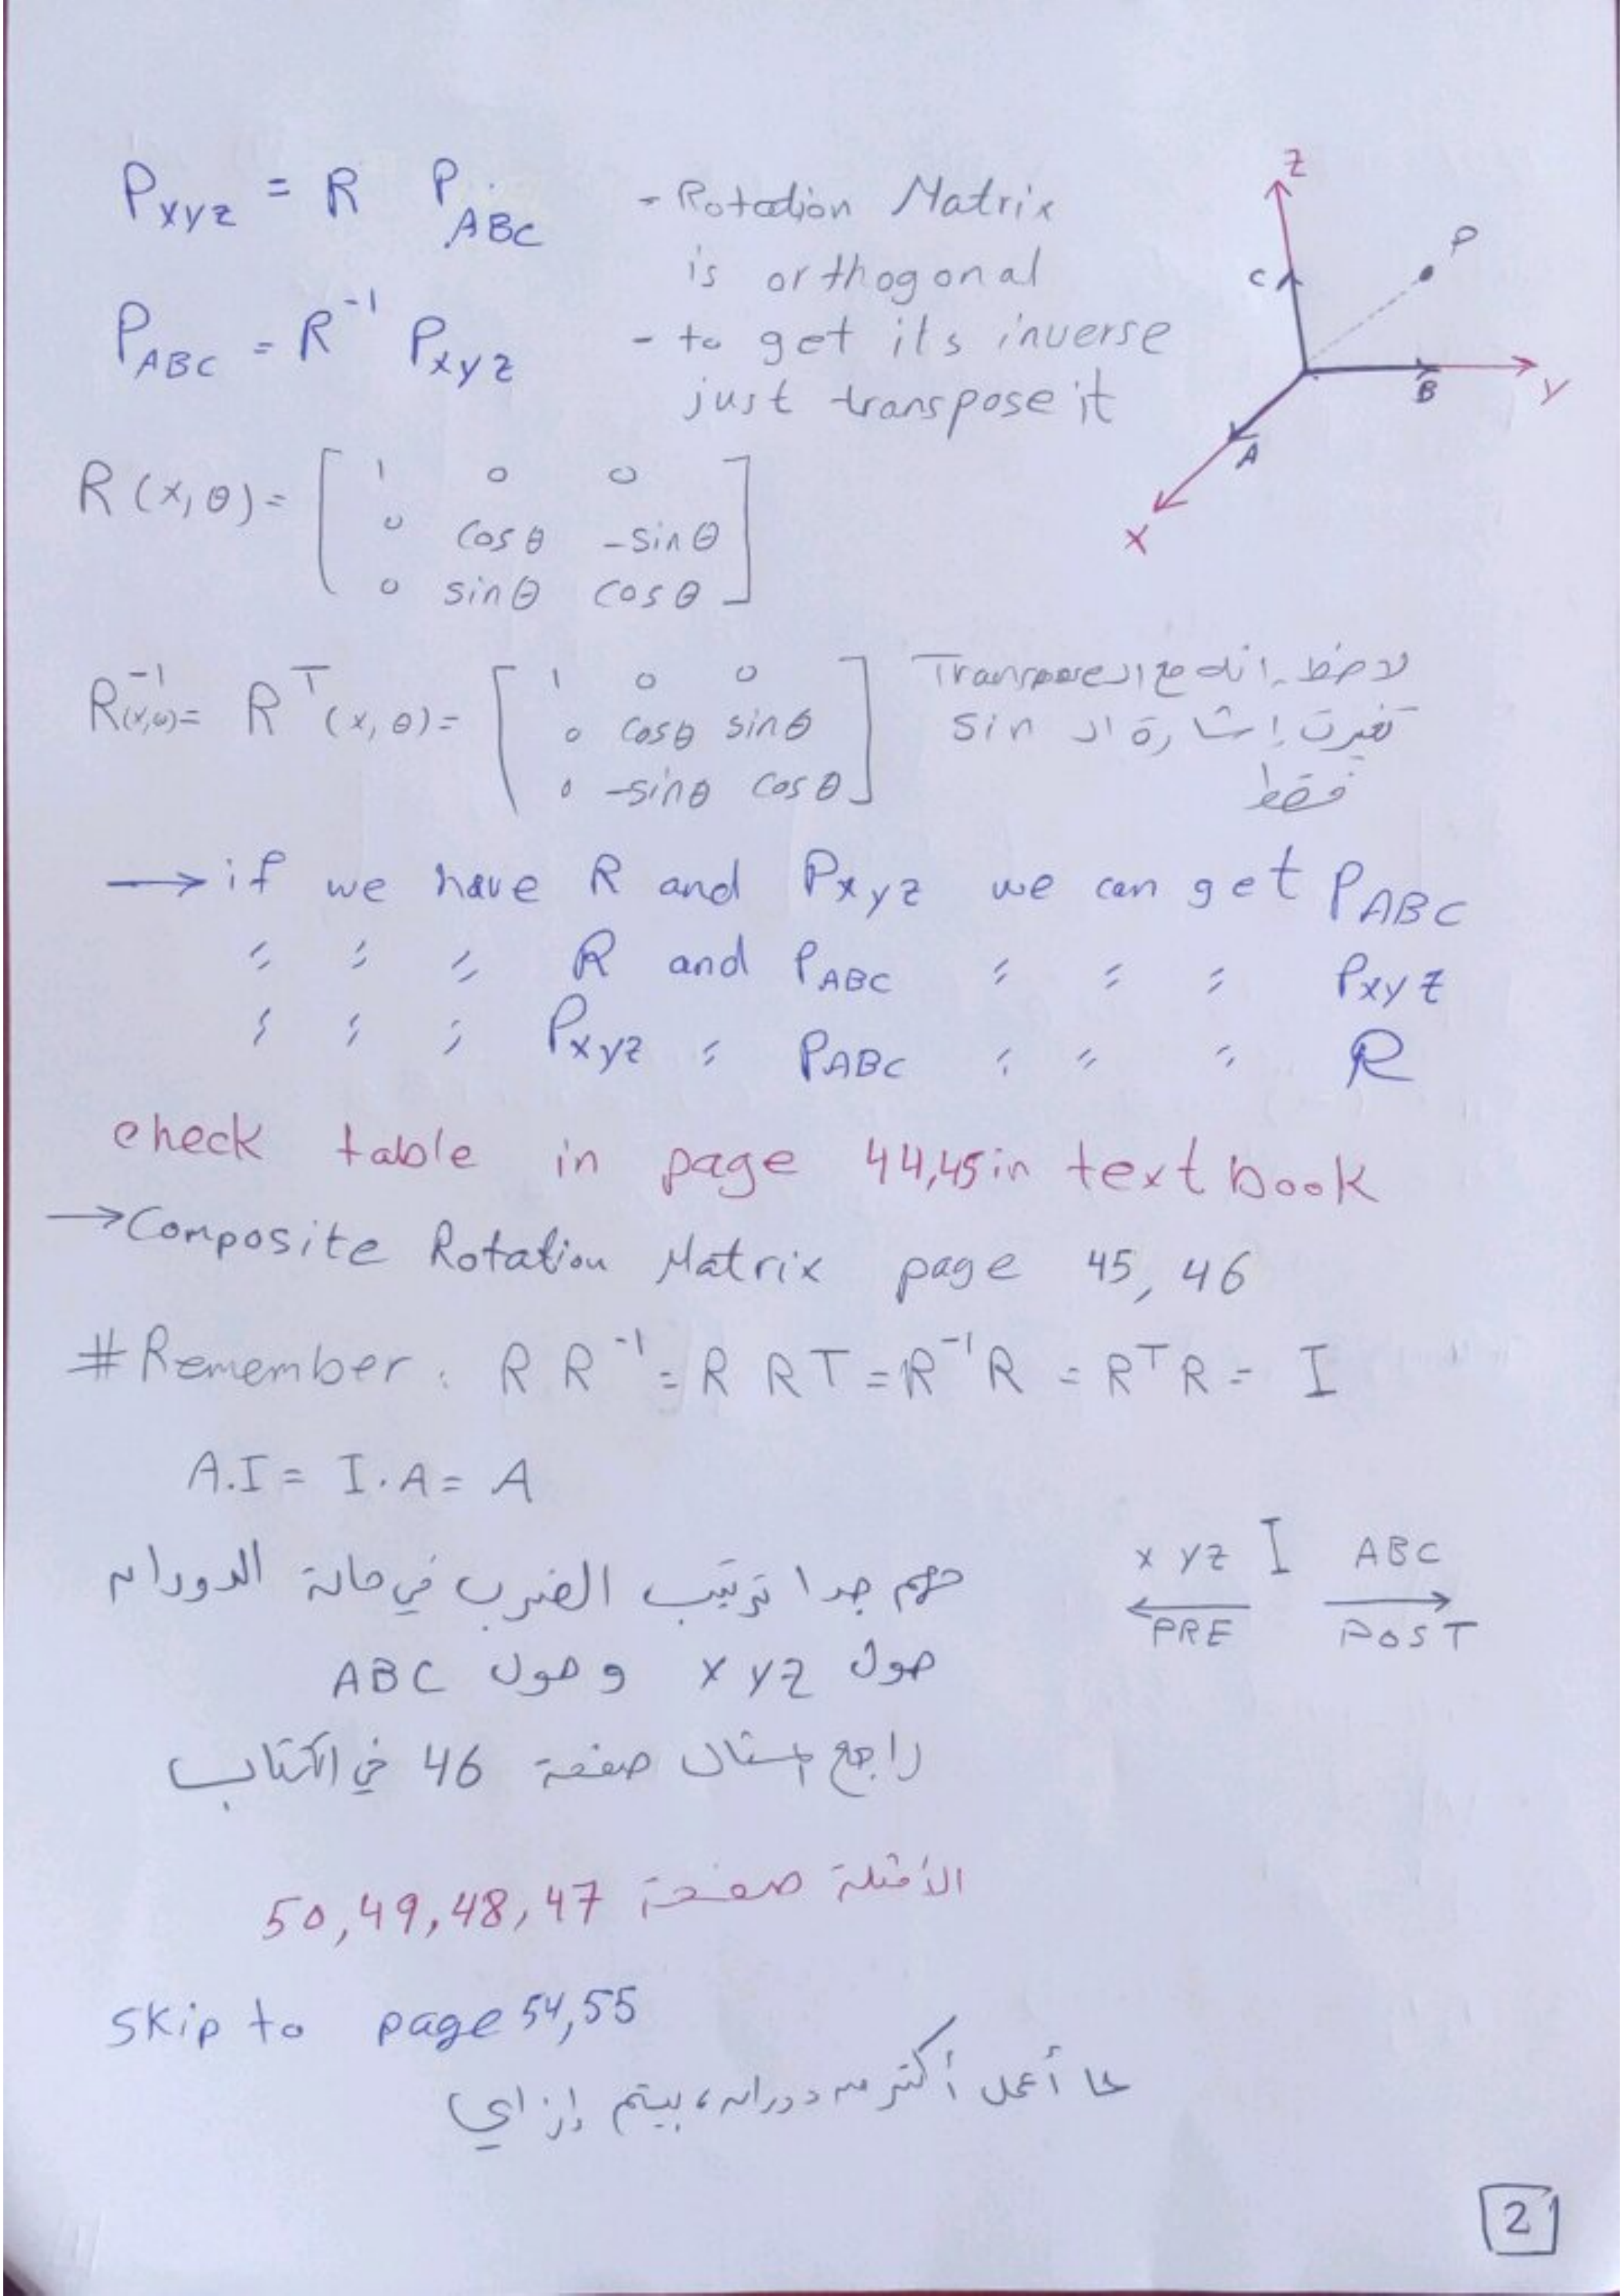 P_xyz = R P_ABC
- Rotation Matrix
is orthogonal
P_ABC = R^-1 P_xyz
- to get its inverse
just transpose it
z
P
C
B
y
A
x
R(x,θ) = [ 1 0 0
0 cosθ -sinθ
0 sinθ cosθ ]
R^-1(x,θ) = R^T(x,θ) = [ 1 0 0
0 cosθ sinθ
0 -sinθ cosθ ]
لاحظ انه مع ال Transpose
تغيرت إشارة ال sin
فقط
→ if we have R and P_xyz we can get P_ABC
" " " R and P_ABC " " " P_xyz
" " " P_xyz " P_ABC " " " R
check table in page 44,45 in text book
→ Composite Rotation Matrix page 45, 46
# Remember : R R^-1 = R R^T = R^-1 R = R^T R = I
A.I = I.A = A
مهم جدا ترتيب الضرب في حالة الدوران
حول xyz وحول ABC
xyz I ABC
← PRE → POST
راجع مثال صفحة 46 في الكتاب
الأمثلة صفحة 47, 48, 49, 50
skip to page 54,55
لما أعمل أكتر من دوران، بيتم إزاي
2